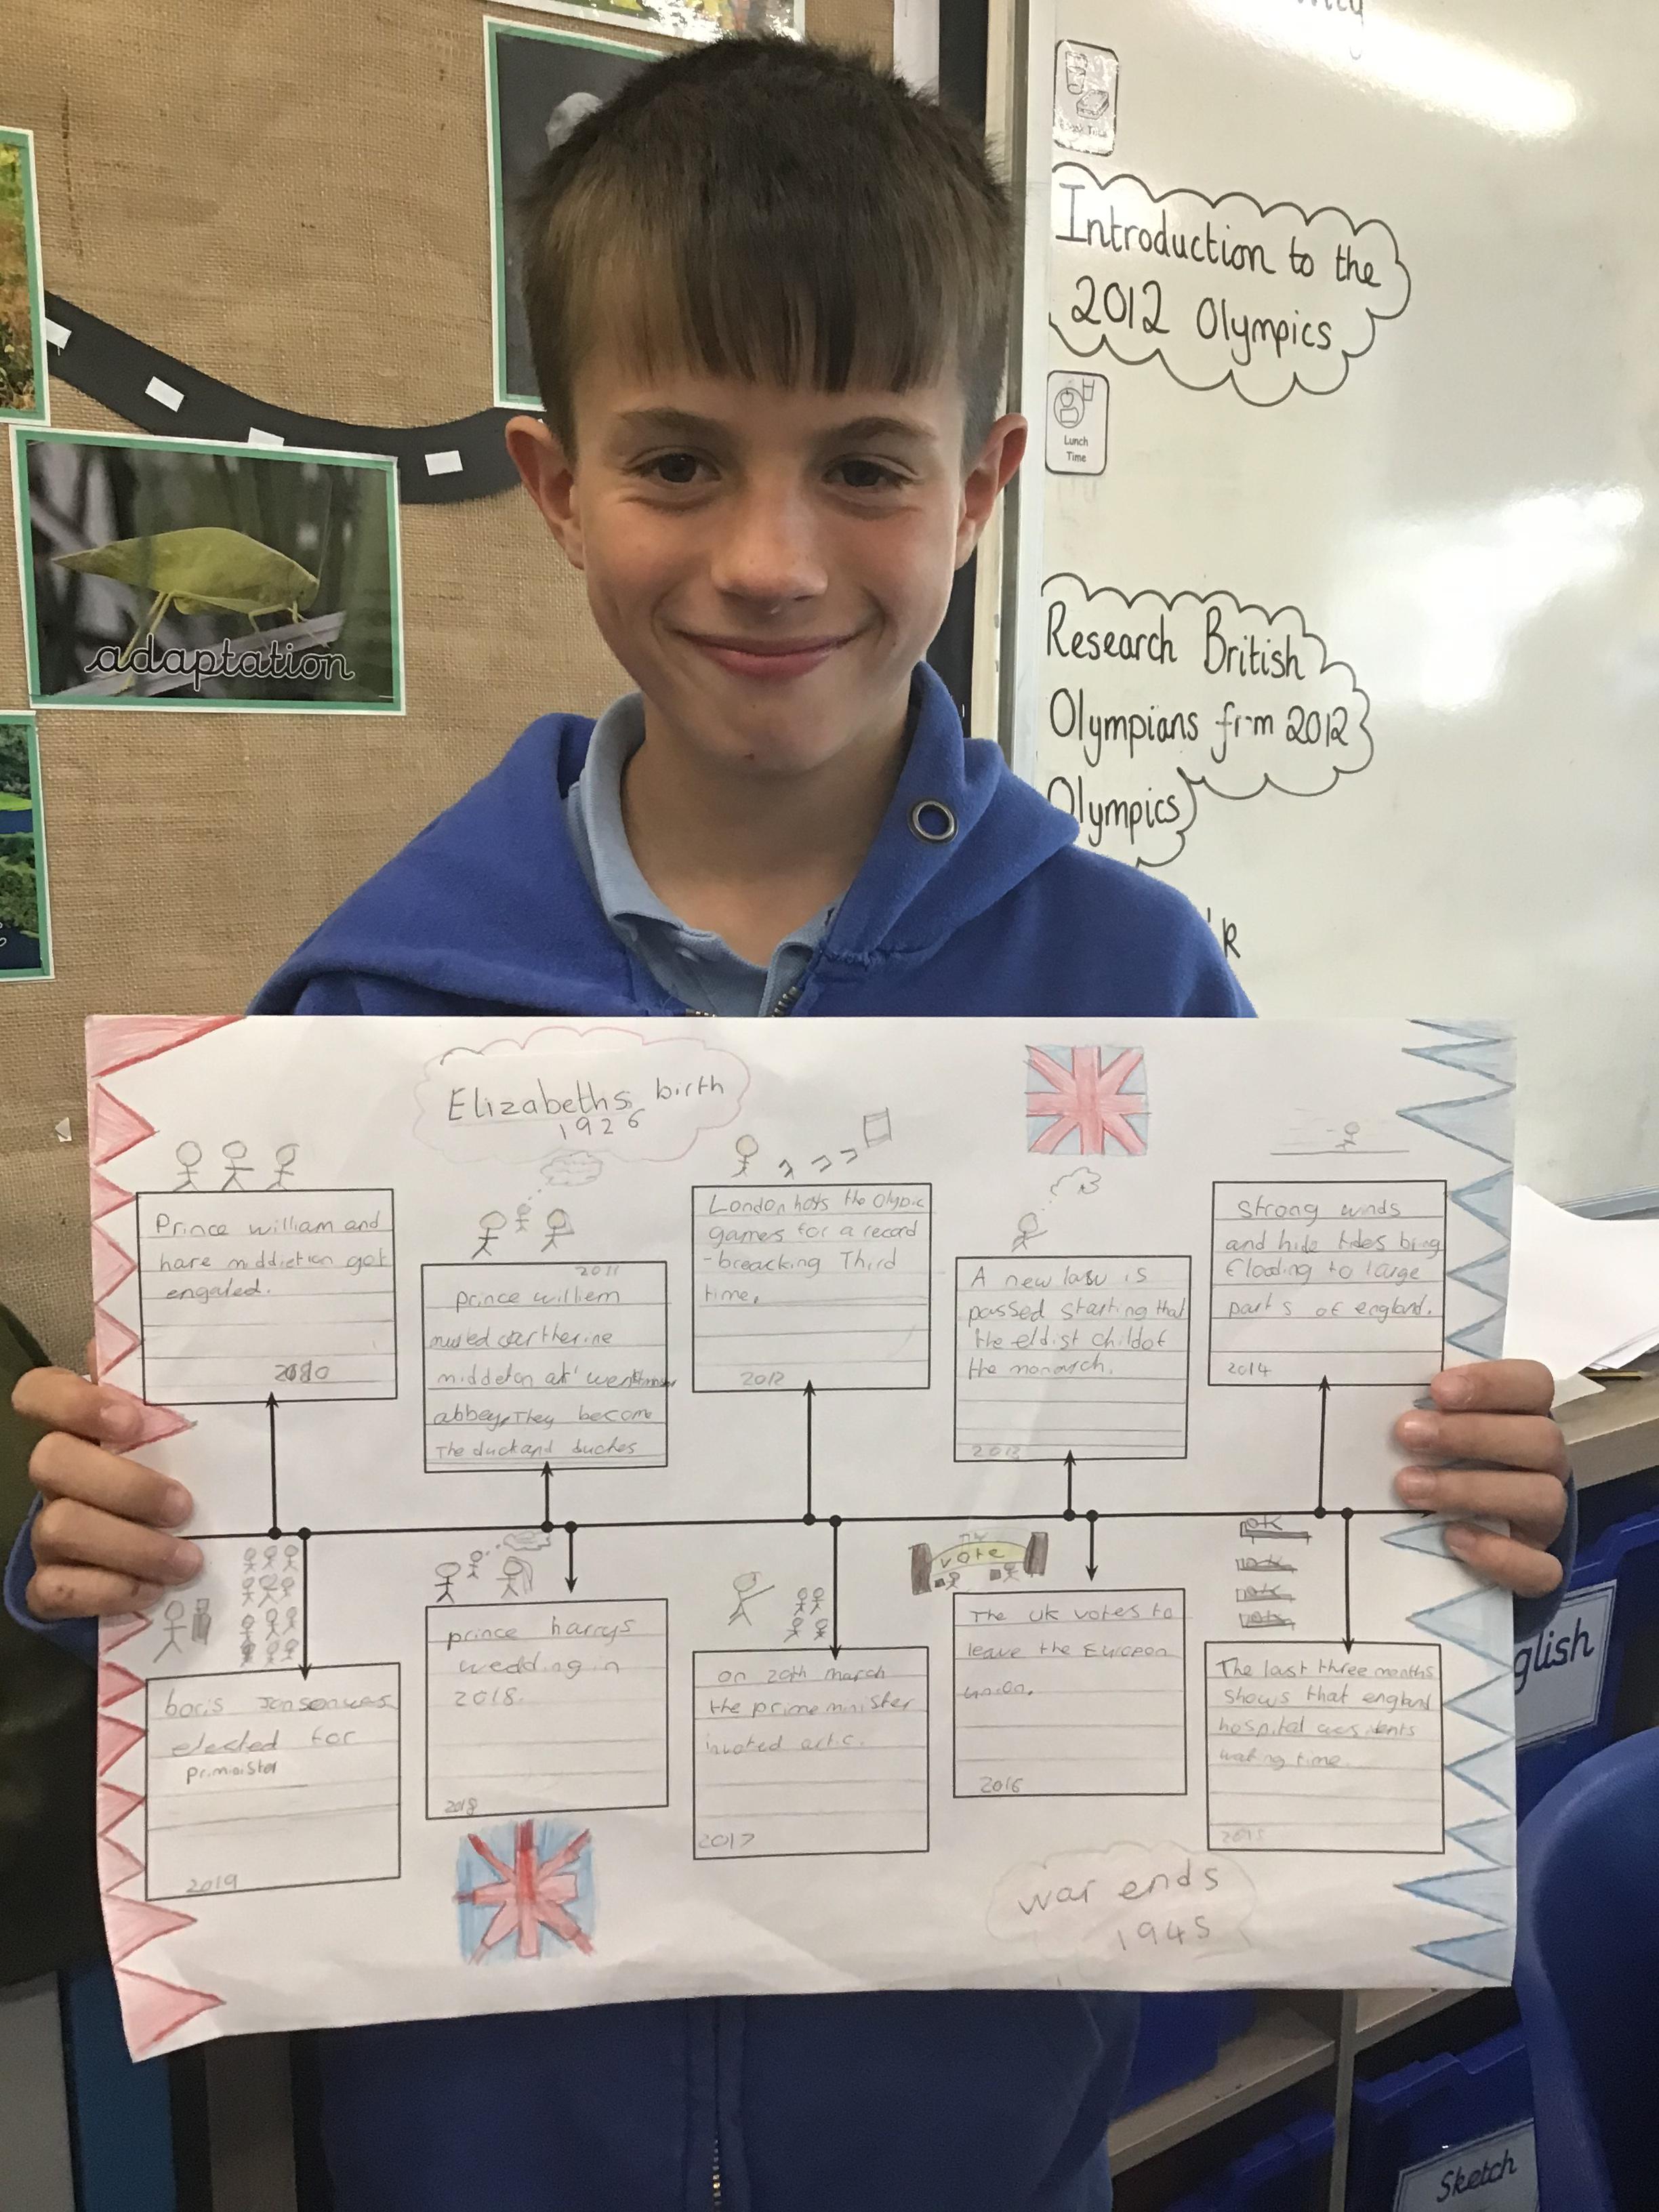 Introduction to the
2012 Olympics
Lunch
Time
Research British
Olympians frm 2012
Olympics
adaptation
Elizabeths birth
1926
Prince william and
hare middietion got
engaled.
2011
prince williem
middeton at
abbey, They become
The duck and duches
London hosts the Olypic
games for a record
-breacking Third
time.
2012
A new law is
passed starting that
the eldist child of
the monarch.
Strong winds
and hide tides bring
flooding to large
parts of england.
2014
boris
elected for
priminister
2019
prince harrys
wedding in
2018.
2018
on 20th march
the prime minister
2017
vote
The uk votes to
leave the Euwpon
2016
The last three months
shows that england
hospital
wating time.
2015
war ends
1945
glish
Sketch